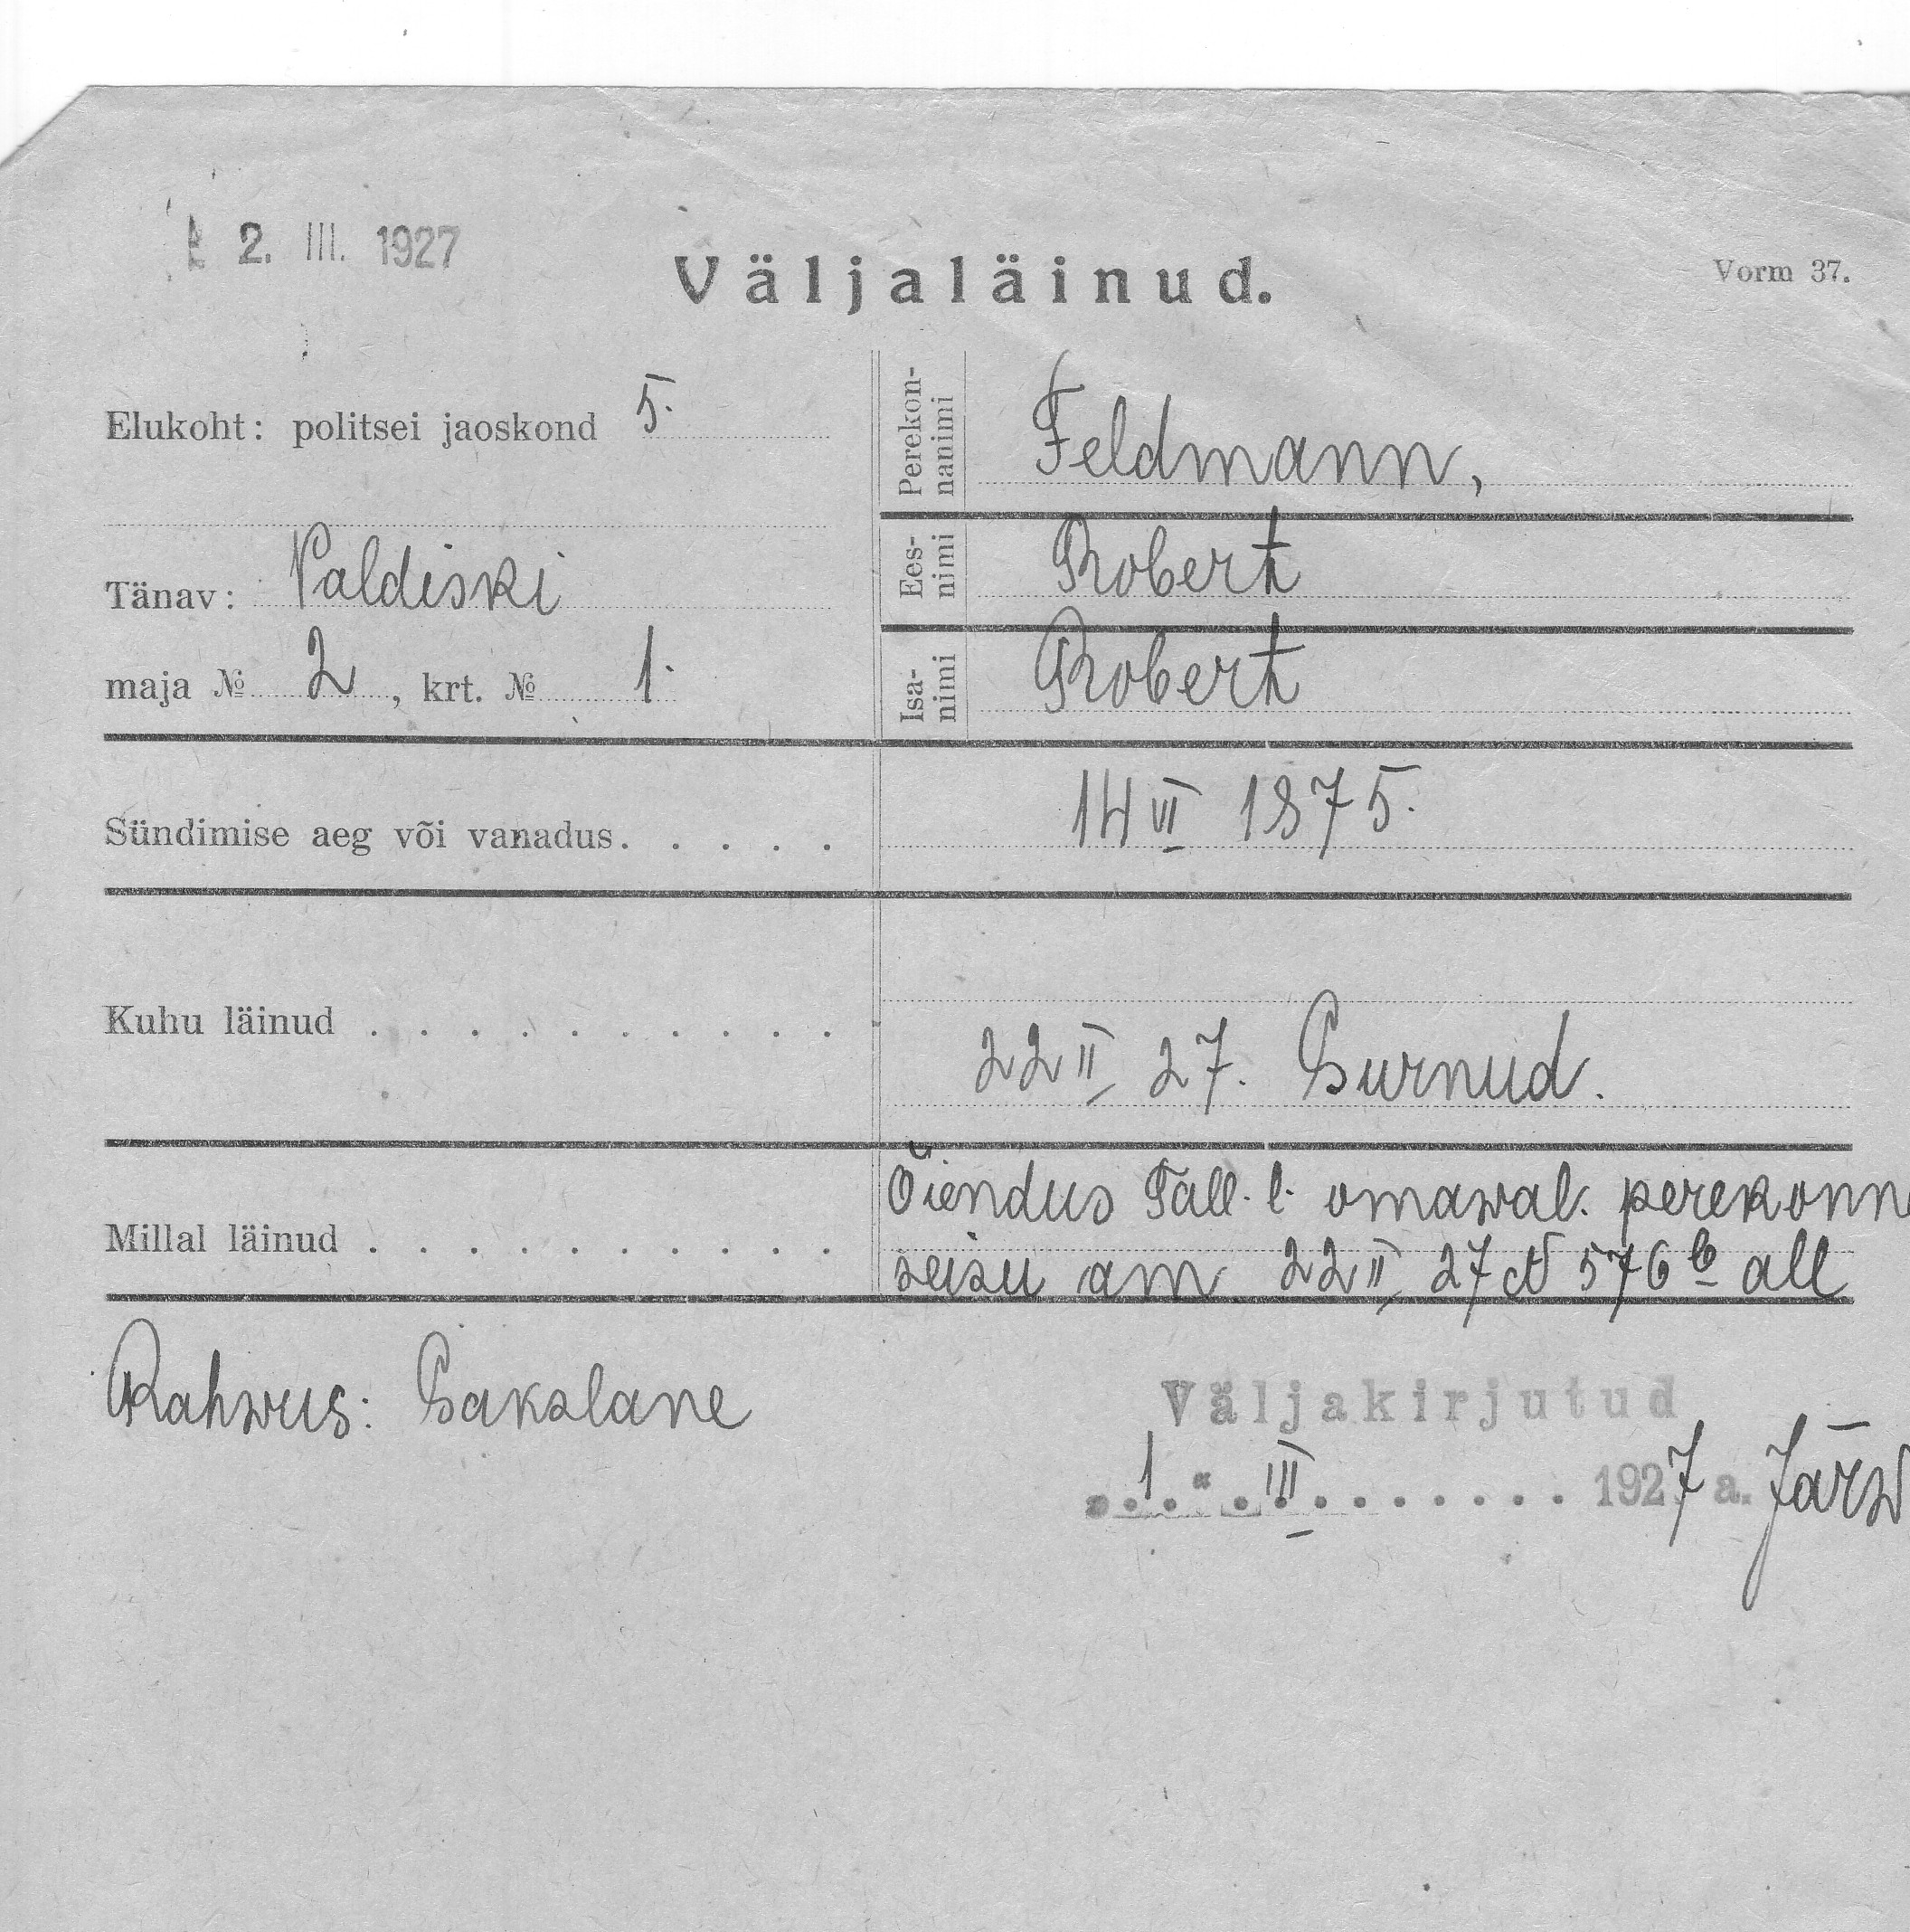 2. III. 1927
Väljaläinud.
Vorm 37.
Elukoht: politsei jaoskond 5.
Tänav: Paldiski
maja № 2, krt. № 1.
Perekon-
nanimi
Feldmann,
Ees-
nimi
Robert
Isa-
nimi
Robert
Sündimise aeg või vanadus. . . . . 14 VI 1875.
Kuhu läinud . . . . . . . . . . 22 II 27. Surnud.
Millal läinud . . . . . . . . . .
Õiendus Tall. l. omawal. perekonna
seisu am 22 II 27 № 576 b all
Rahwus: Sakslane
Väljakirjutud
„ 1. “ III . . . . . . . 1927 a. Järw